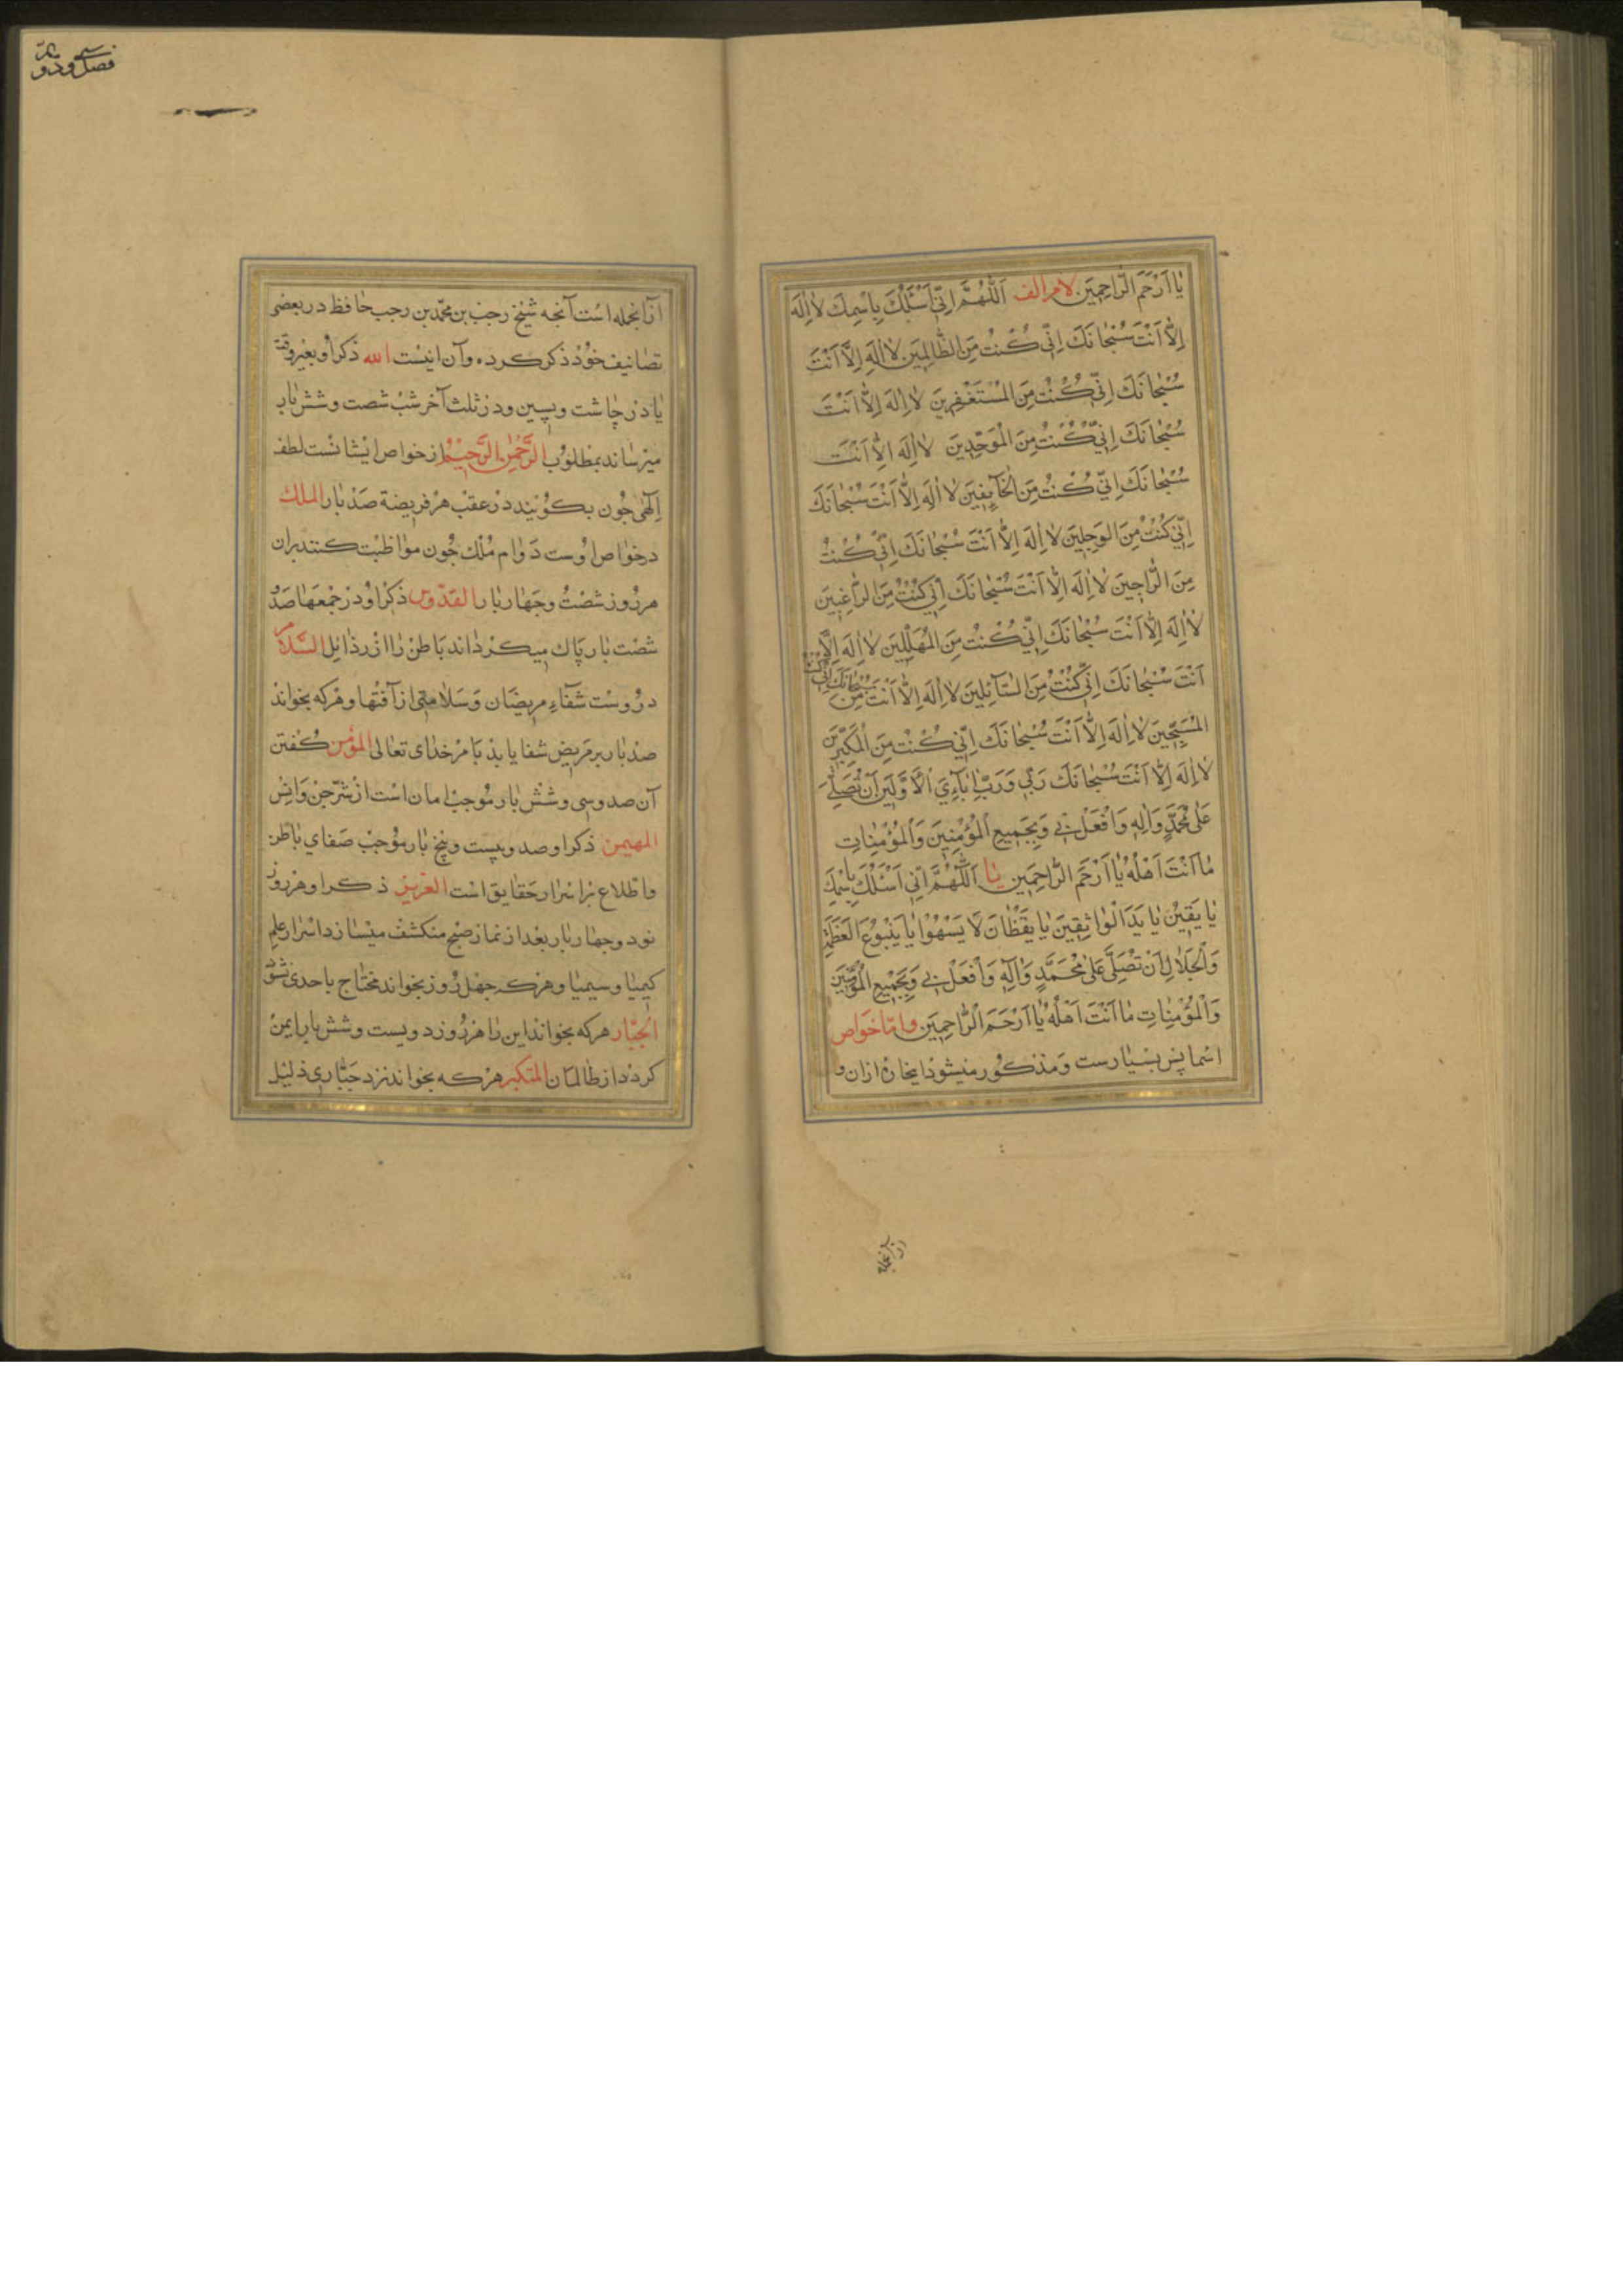 يٰا اَرْحَمَ الرّٰاحِمِينَ لام الف اَللّٰهُمَّ اِنّىِ اَسْئَلُكَ بِاسْمِكَ لٰا اِلٰهَ
اِلّٰا اَنْتَ سُبْحٰانَكَ اِنّىِ كُنْتُ مِنَ الظّٰالِمِينَ لٰا اِلٰهَ اِلّٰا اَنْتَ
سُبْحٰانَكَ اِنّىِ كُنْتُ مِنَ الْمُسْتَغْفِرِينَ لٰا اِلٰهَ اِلّٰا اَنْتَ
سُبْحٰانَكَ اِنّىِ كُنْتُ مِنَ الْمُوَحِّدِينَ لٰا اِلٰهَ اِلّٰا اَنْتَ
سُبْحٰانَكَ اِنّىِ كُنْتُ مِنَ الْخٰآيِفِينَ لٰا اِلٰهَ اِلّٰا اَنْتَ سُبْحٰانَكَ
اِنّىِ كُنْتُ مِنَ الْوَجِلِينَ لٰا اِلٰهَ اِلّٰا اَنْتَ سُبْحٰانَكَ اِنّىِ كُنْتُ
مِنَ الرّٰاجِينَ لٰا اِلٰهَ اِلّٰا اَنْتَ سُبْحٰانَكَ اِنّىِ كُنْتُ مِنَ الرّٰاغِبِينَ
لٰا اِلٰهَ اِلّٰا اَنْتَ سُبْحٰانَكَ اِنّىِ كُنْتُ مِنَ الْمُهَلِّلِينَ لٰا اِلٰهَ اِلّٰا
اَنْتَ سُبْحٰانَكَ اِنّىِ كُنْتُ مِنَ السّٰآئِلِينَ لٰا اِلٰهَ اِلّٰا اَنْتَ سُبْحٰانَكَ اِنّىِ كُنْتُ مِنَ
الْمُسَبِّحِينَ لٰا اِلٰهَ اِلّٰا اَنْتَ سُبْحٰانَكَ اِنّىِ كُنْتُ مِنَ الْمُكَبِّرِينَ
لٰا اِلٰهَ اِلّٰا اَنْتَ سُبْحٰانَكَ رَبّىِ وَرَبُّ اٰبٰآءِيَ الْاَوَّلِينَ اَنْ تُصَلِّىَ
عَلىٰ مُحَمَّدٍ وَاٰلِهِ وَافْعَلْ بىِ وَبِجَمِيعِ الْمُؤْمِنِينَ وَالْمُؤْمِنٰاتِ
مٰا اَنْتَ اَهْلُهُ يٰا اَرْحَمَ الرّٰاحِمِينَ يٰا اَللّٰهُمَّ اِنّىِ اَسْئَلُكَ بِاسْمِكَ
يٰا يَقِينُ يٰا يَدَ الْوٰاثِقِينَ يٰا يَقْظٰانَ لٰا يَسْهُوا يٰا يَنْبُوعَ الْعَظَمَةِ
وَالْجَلٰالِ اَنْ تُصَلِّىَ عَلىٰ مُحَمَّدٍ وَاٰلِهِ وَافْعَلْ بىِ وَبِجَمِيعِ الْمُؤْمِنِينَ
وَالْمُؤْمِنٰاتِ مٰا اَنْتَ اَهْلُهُ يٰا اَرْحَمَ الرّٰاحِمِينَ وامّا خَوٰاص
اسْما پس بسْيٰارست وَمذكُور ميشوَد اينجا از ان و
از آنجمله
فصل سى ودوم
از آنجمله اسْت آنچه شيْخ رجبْ بن محمّد بن رجب حٰافظ در بعضى
تصٰانيف خوُدْ ذكر كرده وآن اينسْت الله ذكر او بغيْر وقت
يٰا دَر چٰاشت وپسين ودرْ ثلث آخر شبْ شصت وشش بٰار
ميْرسٰاند بمطلوُب الرَّحْمٰن الرَّحيْم از خواص ايْشانسْت لطف
اِلٰهىٰ چُون بكوُيْند درْ عقبْ هرْ فريضة صَدْ بار الملك
در خوٰاص اوُست دَوٰام مُلك چُون موٰاظبْت كنند بران
هر رُوز شصْتُ وچهٰار بٰار القدّوس ذكر اوُ درْ جُمعَهٰا صَدْ و
شصْت بٰار پٰاك ميكردٰاند بٰاطنْ رٰا ازْ رذٰائل السَّلام
در وُسْت شفآء مريضٰان وَسَلامتى از آفتْها وهرْكه بخوٰاند
صدْ بٰار بر مَريض شفا يابدْ بَا مْر خدٰاى تعٰالى المؤمن كُفتن
آن صد وسى وشش بٰار مُوجبْ امان اسْت از شرّ جنْ وَانسْ
المهيمن ذكر او صد وبيست وپنج بٰار مُوجبْ صَفاي بٰاطن
واطّلاع برْ اسْرٰار حَقٰايق اسْت العزيز ذكر او هرْ روز
نود وچهٰار بٰار بعْد از نماز صُبْح منكشفْ ميْسٰازد اسْرٰار علم
كيميٰا وسيميٰا وهرْكه چهْل رُوز بخوٰاند محْتٰاج باحدى نشوَد
الجبّار هركه بخوٰاند اين رٰا هرْ رُوز دويست وشش بٰار ايمنْ
كردد از ظٰالمٰان المتكبر هرْكه بخوٰاند نزد جَبّٰارى ذليْل